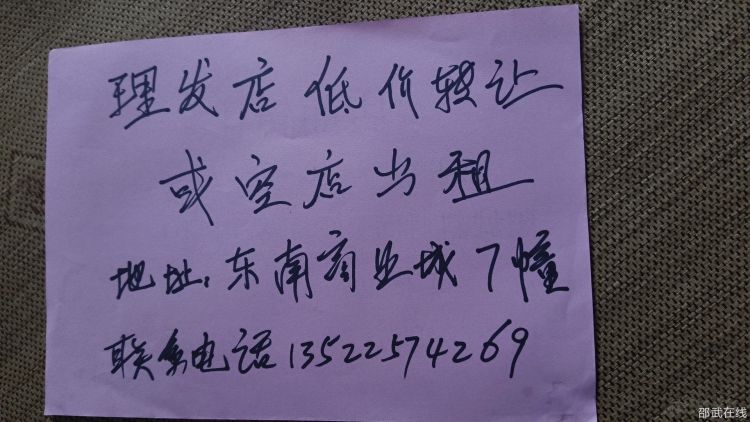 理发店低价转让
或空店出租
地址：东南商业城7幢
联系电话13522574269
邵武在线